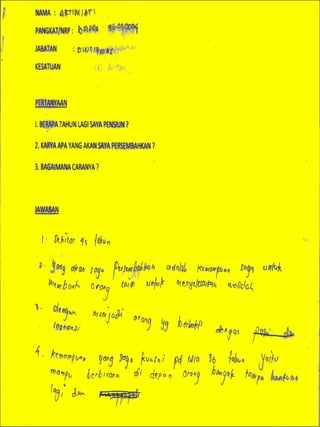 NAMA : ARTIMIATI
PANGKAT/NRP :
JABATAN :
KESATUAN
PERTANYAAN
1. BERAPA TAHUN LAGI SAYA PENSIUN ?
2. KARYA APA YANG AKAN SAYA PERSEMBAHKAN ?
3. BAGAIMANA CARANYA ?
JAWABAN
1. Sekitar tahun
2. Yang akan saya Persembahkan adalah kemampuan saya untuk
membantu orang lain untuk menyelesaikan masalah
3. dengan menjadi orang yg berbakti dengan
4. kemampuan yang saya kuasai pd usia tahun yaitu
mampu berbicara di depan orang banyak tanpa
lagi dan